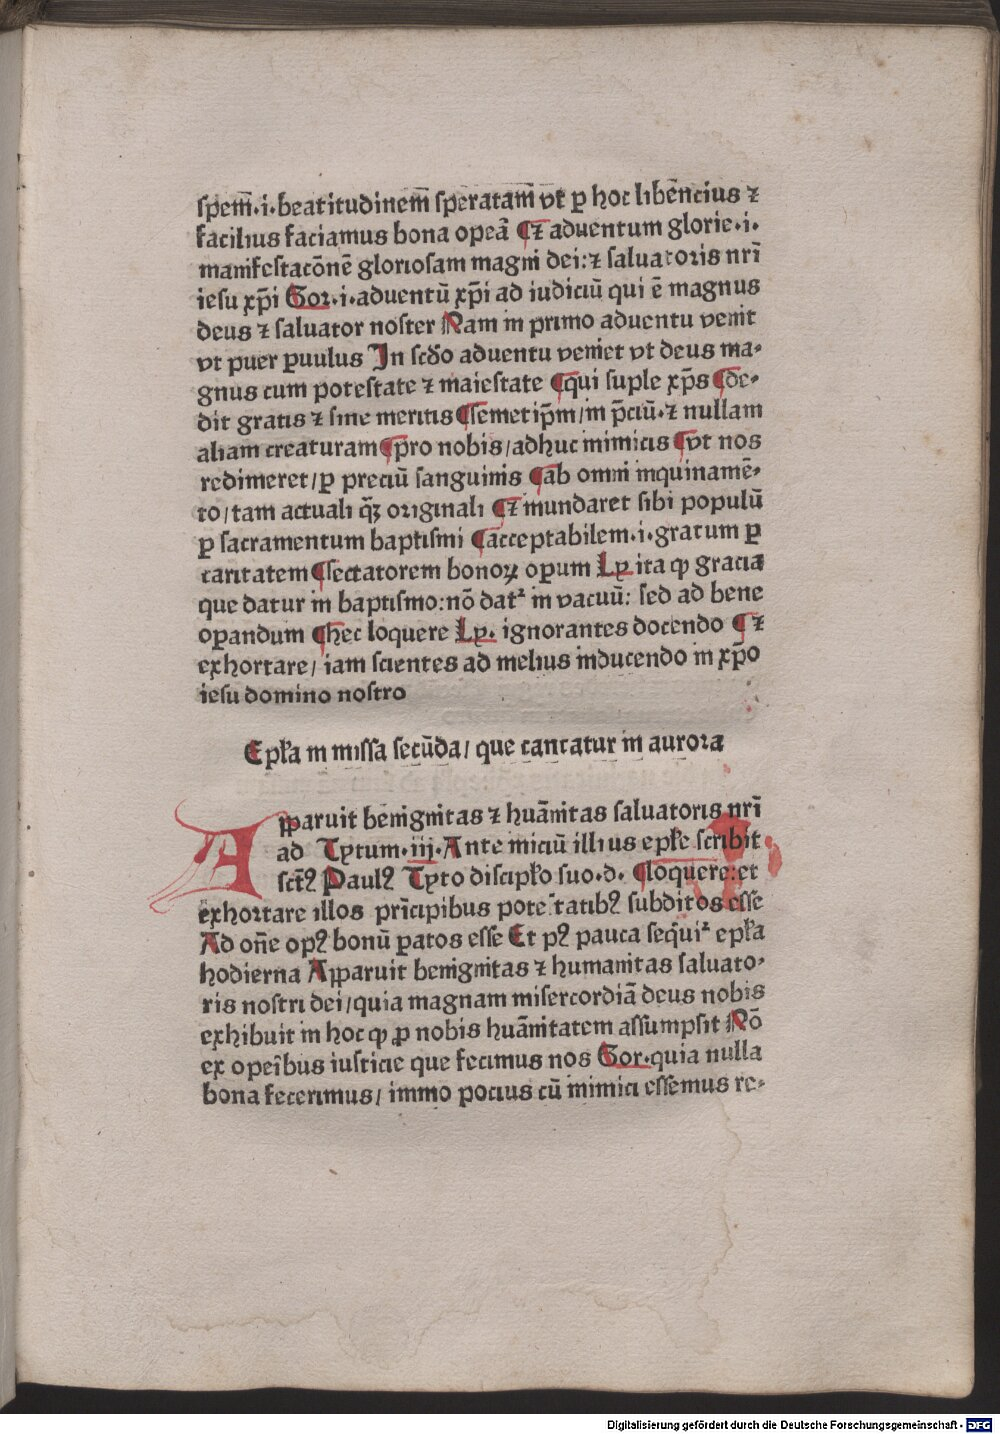 spem̄·i·beatitudinem̄ speratam̄ vt̄ ꝑ hoc libēncius ⁊
facilius faciamus bona opeā ¶⁊ aduentum glorie·i·
manifestacōnē gloriosam magni dei:⁊ saluatoris nr̄i
iesu xp̄i Gor·i·aduentū xp̄i ad iudiciū qui ē magnus
deus ⁊ saluator noster Nam in primo aduentu venit
vt puer ꝑuulus In scd̄o aduentu veniet vt deus ma-
gnus cum potestate ⁊ maiestate ¶qui suple xp̄s ¶de-
dit gratis ⁊ sine meritis ¶semetip̄m/in p̄ciū·⁊ nullam
aliam creaturam ¶pro nobis/adhuc inimicis ¶vt nos
redimeret/ꝑ preciū sanguinis ¶ab omni inquinamē-
to/tam actuali qꝫ̄ originali ¶⁊ mundaret sibi populū
ꝑ sacramentum baptismi ¶acceptabilem·i·gratum ꝑ
caritatem ¶sectatorem bonoꝝ operum Ly ita ꝙ gracia
que datur in baptismo:nō datᷣ in vacuū: sed ad bene
oꝑandum ¶hec loquere Ly· ignorantes docendo ¶⁊
exhortare/ iam scientes ad melius inducendo in xp̄o
iesu domino nostro
Epl̄a in missa secūda/ que cantatur in aurora
Apparuit benignitas ⁊ huānitas saluatoris nr̄i
ad Tytum·iij·Ante iniciū illius epl̄e scribit
sct̄ꝰ Paulꝰ Tyto discipl̄o suo·d· ¶loquere:et
exhortare illos prīcipibus potestatibꝰ subditos esse
Ad on̄e opꝰ bonū ꝑatos esse Et pꝰ pauca seq̄uiᷣ epl̄a
hodierna Apparuit benignitas ⁊ humanitas saluato-
ris nostri dei/quia magnam misercordiā deus nobis
exhibuit in hoc ꝙ ꝓ nobis huānitatem assumpsit Nō
ex opeībus iusticie que fecimus nos Gor·quia nulla
bona fecerimus/ immo pocius cū inimici essemus re-
Digitalisierung gefördert durch die Deutsche Forschungsgemeinschaft - DFG